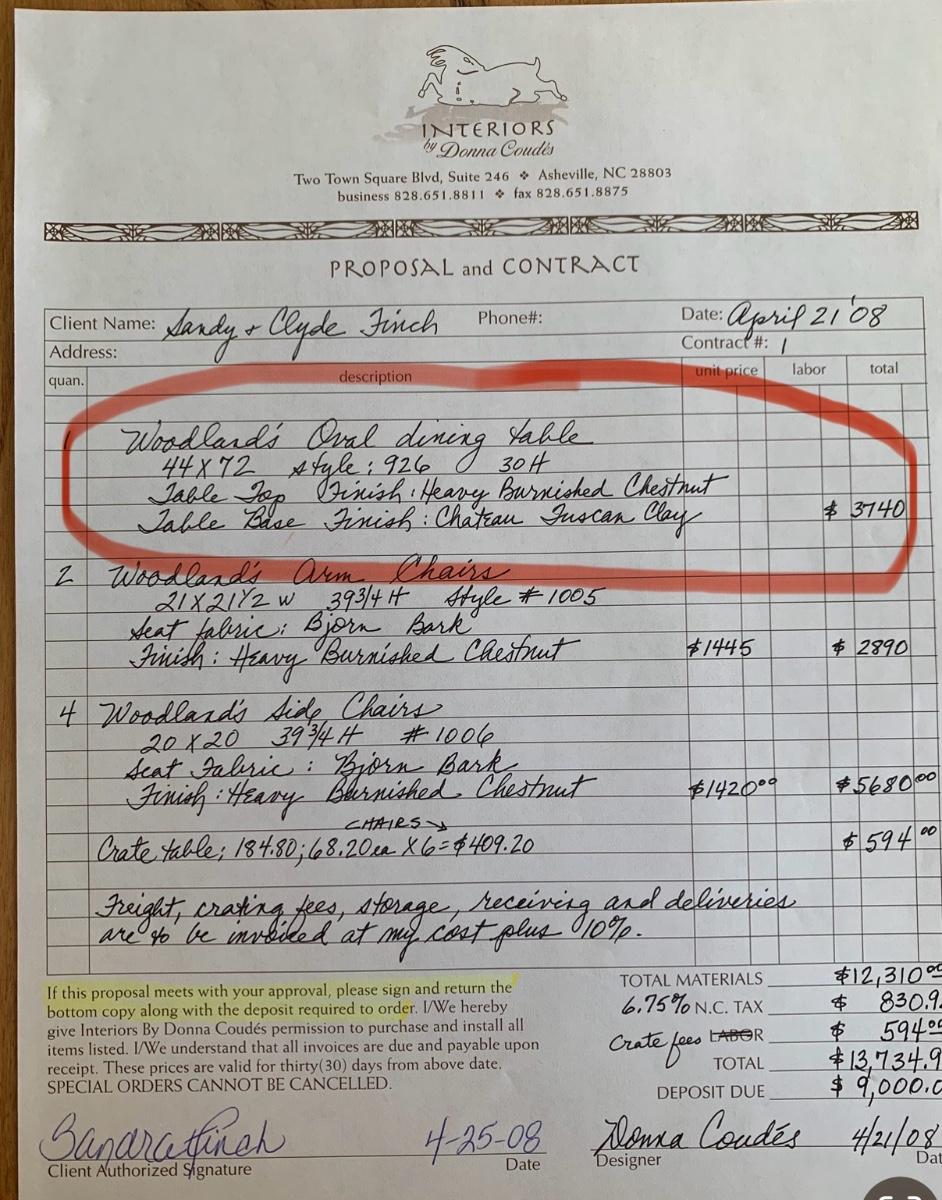 INTERIORS
by Donna Coudés
Two Town Square Blvd, Suite 246 ❖ Asheville, NC 28803
business 828.651.8811 ❖ fax 828.651.8875
PROPOSAL and CONTRACT
Client Name: Sandy + Clyde Finch Phone#: Date: April 21 '08
Address: Contract #: 1
quan. description unit price labor total
1 Woodland's Oval dining table
44 X 72 style: 926 30 H
Table Top Finish: Heavy Burnished Chestnut
Table Base Finish: Chateau Tuscan Clay $ 3740
2 Woodland's Arm Chairs
21 X 21 1/2 W 39 3/4 H Style # 1005
Seat fabric: Bjorn Bark
Finish: Heavy Burnished Chestnut $1445 $ 2890
4 Woodland's Side Chairs
20 X 20 39 3/4 H # 1006
Seat Fabric: Bjorn Bark
Finish: Heavy Burnished Chestnut $1420.00 $5680 00
CHAIRS
Crate table; 184.80; 68.20 ea X 6 = $409.20 $ 594 00
Freight, crating fees, storage, receiving and deliveries
are to be invoiced at my cost plus 10%.
If this proposal meets with your approval, please sign and return the
bottom copy along with the deposit required to order. I/We hereby
give Interiors By Donna Coudés permission to purchase and install all
items listed. I/We understand that all invoices are due and payable upon
receipt. These prices are valid for thirty(30) days from above date.
SPECIAL ORDERS CANNOT BE CANCELLED.
TOTAL MATERIALS $12,310 00
6.75% N.C. TAX $ 830.9
Crate fees LABOR $ 594 00
TOTAL $13,734.9
DEPOSIT DUE $ 9,000.0
Sandra Finch 4-25-08 Donna Coudés 4/21/08
Client Authorized Signature Date Designer Dat